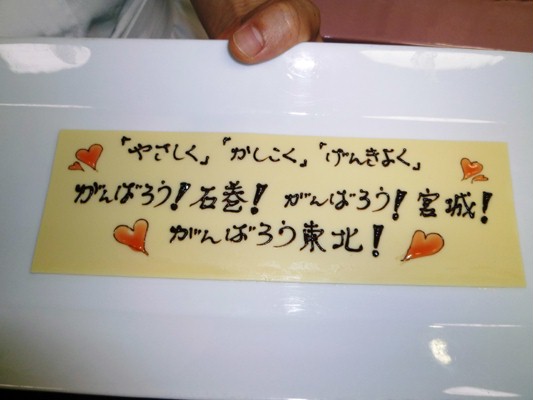 「やさしく」「かしこく」「げんきよく」
がんばろう!石巻! がんばろう!宮城!
がんばろう東北!